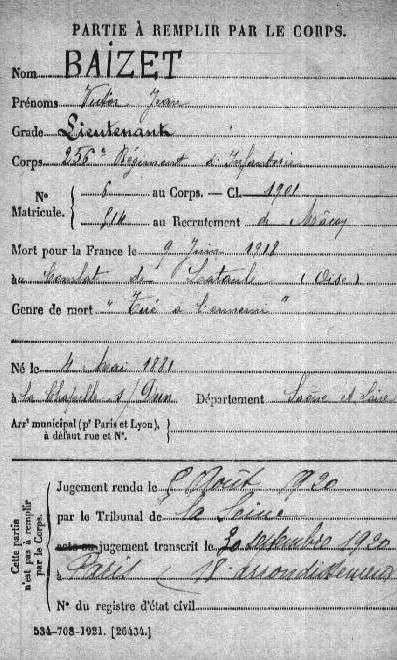 PARTIE À REMPLIR PAR LE CORPS.
Nom BAIZET
Prénoms Victor Jean
Grade Lieutenant
Corps 256e Régiment d'Infanterie
Nº Matricule. { 6 au Corps. — Cl. 1901
814 au Recrutement de Mâcon
Mort pour la France le 9 Juin 1918
au Combat de (Oise)
Genre de mort "Tué à l'ennemi"
Né le 4 Mai 1881
à La Chapelle s/ Dun Département Saône et Loire
Arrt municipal (pr Paris et Lyon), à défaut rue et Nº. }
Cette partie n'est pas à remplir par le Corps. {
Jugement rendu le 5 Août 1920
par le Tribunal de la Seine
acte ou jugement transcrit le 30 septembre 1920
à Paris 18e arrondissement
Nº du registre d'état civil
534-708-1921. [26434.]